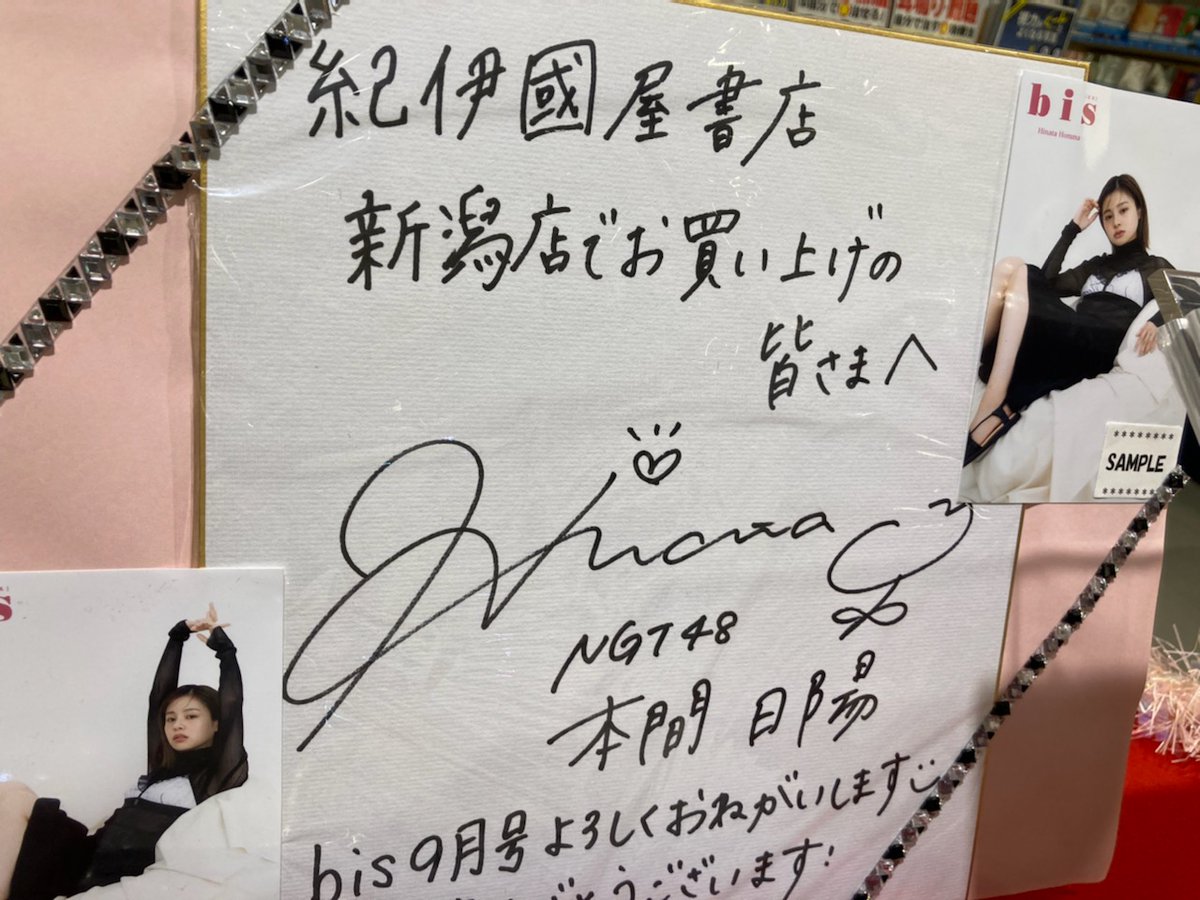 紀伊國屋書店
新潟店でお買い上げの
皆さまへ
NGT48
本間日陽
bis9月号よろしくおねがいします
とうございます!
bis
Hinata Homma
SAMPLE